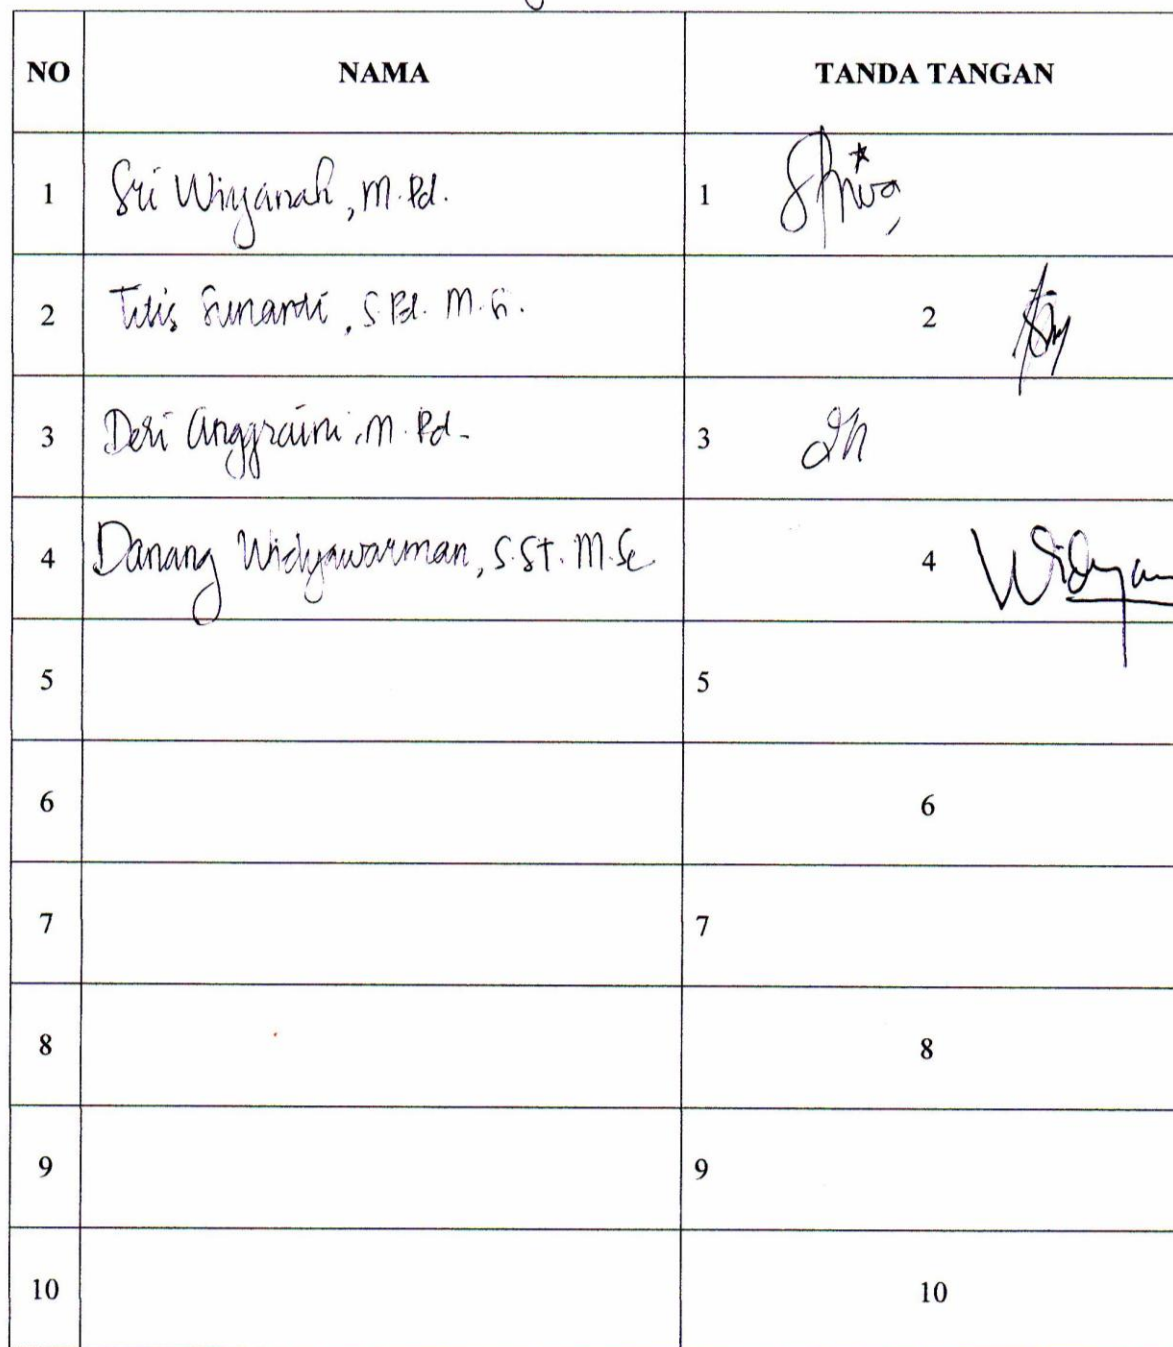 NO NAMA TANDA TANGAN
1 Sri Wiyanah, M.Pd. 1
2 Titis Sunanti, S.Pd. M.Si. 2
3 Desi Anggraini, M.Pd. 3
4 Danang Widyawarman, S.ST. M.Sc 4 Widyaw
5 5
6 6
7 7
8 8
9 9
10 10